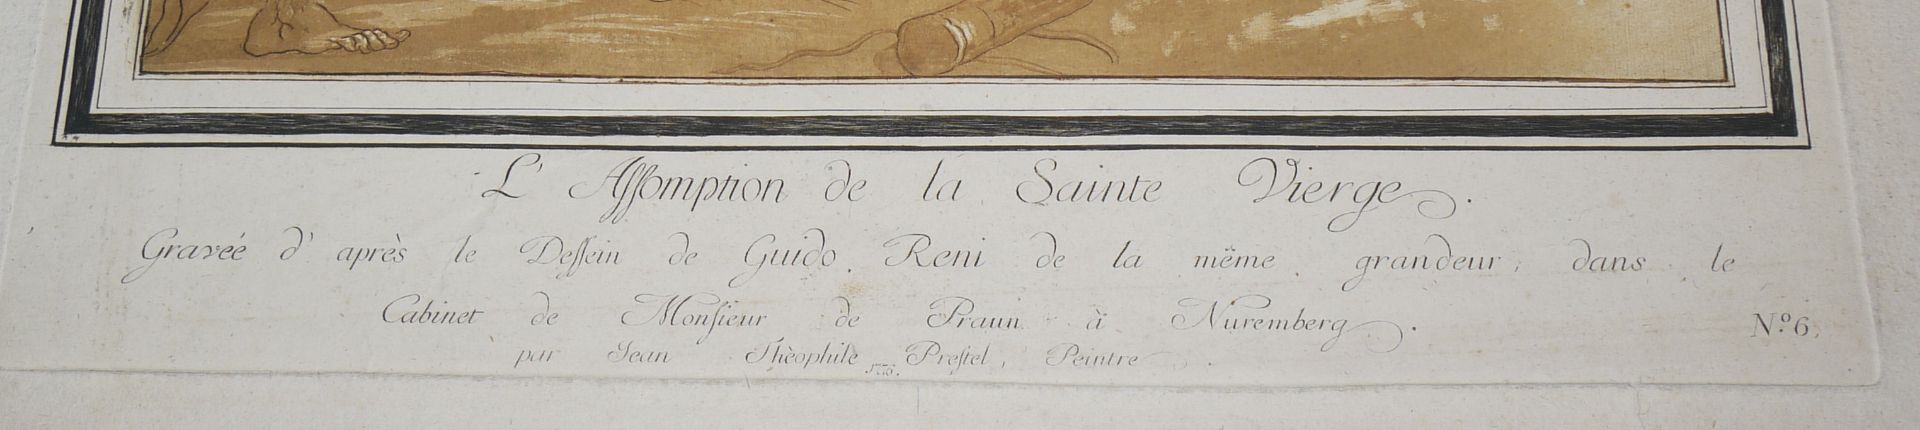 L' Assomption de la Sainte Vierge.
Gravéé d' après le Dessein de Guido Reni de la même grandeur, dans le
Cabinet de Monsieur de Praun à Nuremberg.
N.º 6.
par Jean Thèophile Prestel, Peintre.